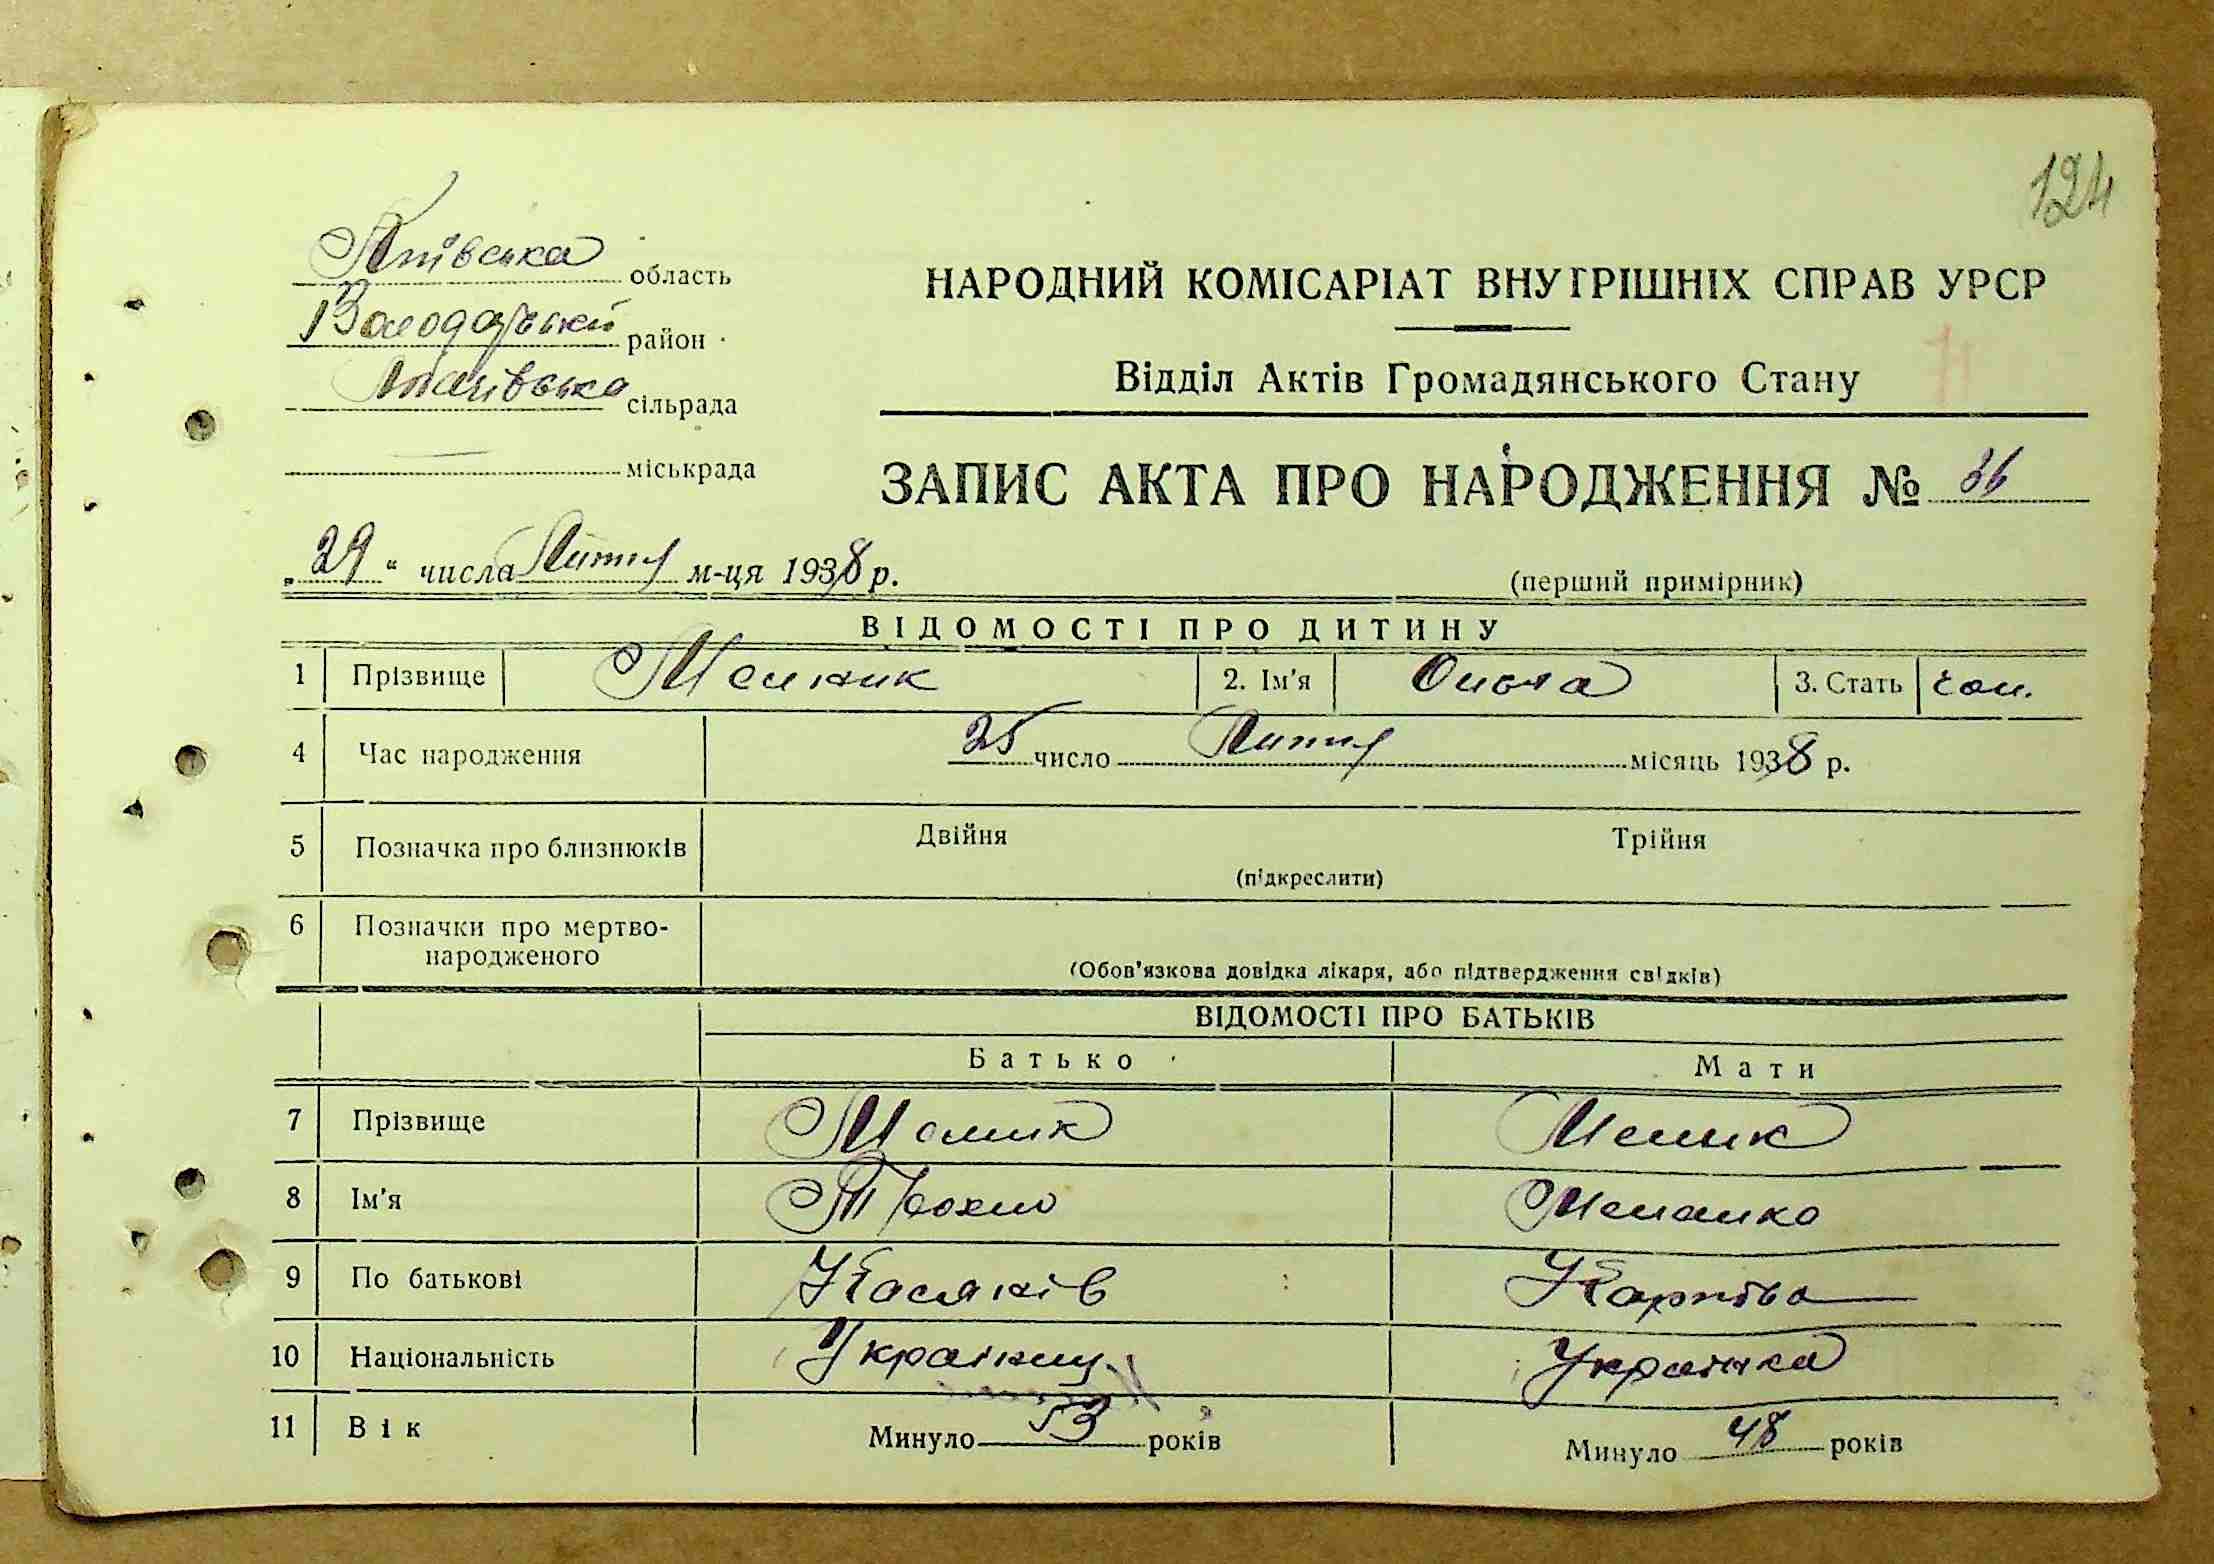 124
Київська область
Володарський район
сільрада
міськрада
НАРОДНИЙ КОМІСАРІАТ ВНУТРІШНІХ СПРАВ УРСР
Відділ Актів Громадянського Стану
ЗАПИС АКТА ПРО НАРОДЖЕННЯ № 36
„29“ числа Липня м-ця 1938 р.
(перший примірник)
ВІДОМОСТІ ПРО ДИТИНУ
1 Прізвище Мельник 2. Ім'я Ольга 3. Стать
4 Час народження 25 число Липня місяць 1938 р.
5 Позначка про близнюків Двійня Трійня
(підкреслити)
6 Позначки про мертво-
народженого
(Обов'язкова довідка лікаря, або підтвердження свідків)
ВІДОМОСТІ ПРО БАТЬКІВ
Батько Мати
7 Прізвище Мелник Мелник
8 Ім'я Трохим Меланка
9 По батькові Карпова
10 Національність Українец Українка
11 Вік Минуло 53 років Минуло 48 років